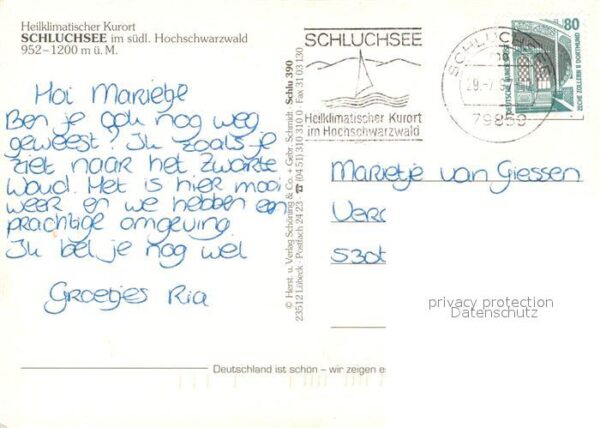 Heilklimatischer Kurort
SCHLUCHSEE im südl. Hochschwarzwald
952–1200 m ü. M.
Hoi Marietje
Ben je ook nog weg
geweest? Ik zoals je
ziet naar het Zwarte
Woud. Het is hier mooi
weer en we hebben een
prachtige omgeving
Ik bel je nog wel
Groetjes Ria
© Herst. u. Verlag Schöning & Co. + Gebr. Schmidt Schlu 390
23512 Lübeck · Postfach 24 23 · ☎ (04 51) 310 310 · Fax 31 03 130
SCHLUCHSEE
Heilklimatischer Kurort
im Hochschwarzwald
SCHLUCHSEE
79859
80
DEUTSCHE BUNDESPOST
ZECHE ZOLLERN II DORTMUND
Marietje van Giessen
Ver
530
privacy protection
Datenschutz
Deutschland ist schön – wir zeigen es